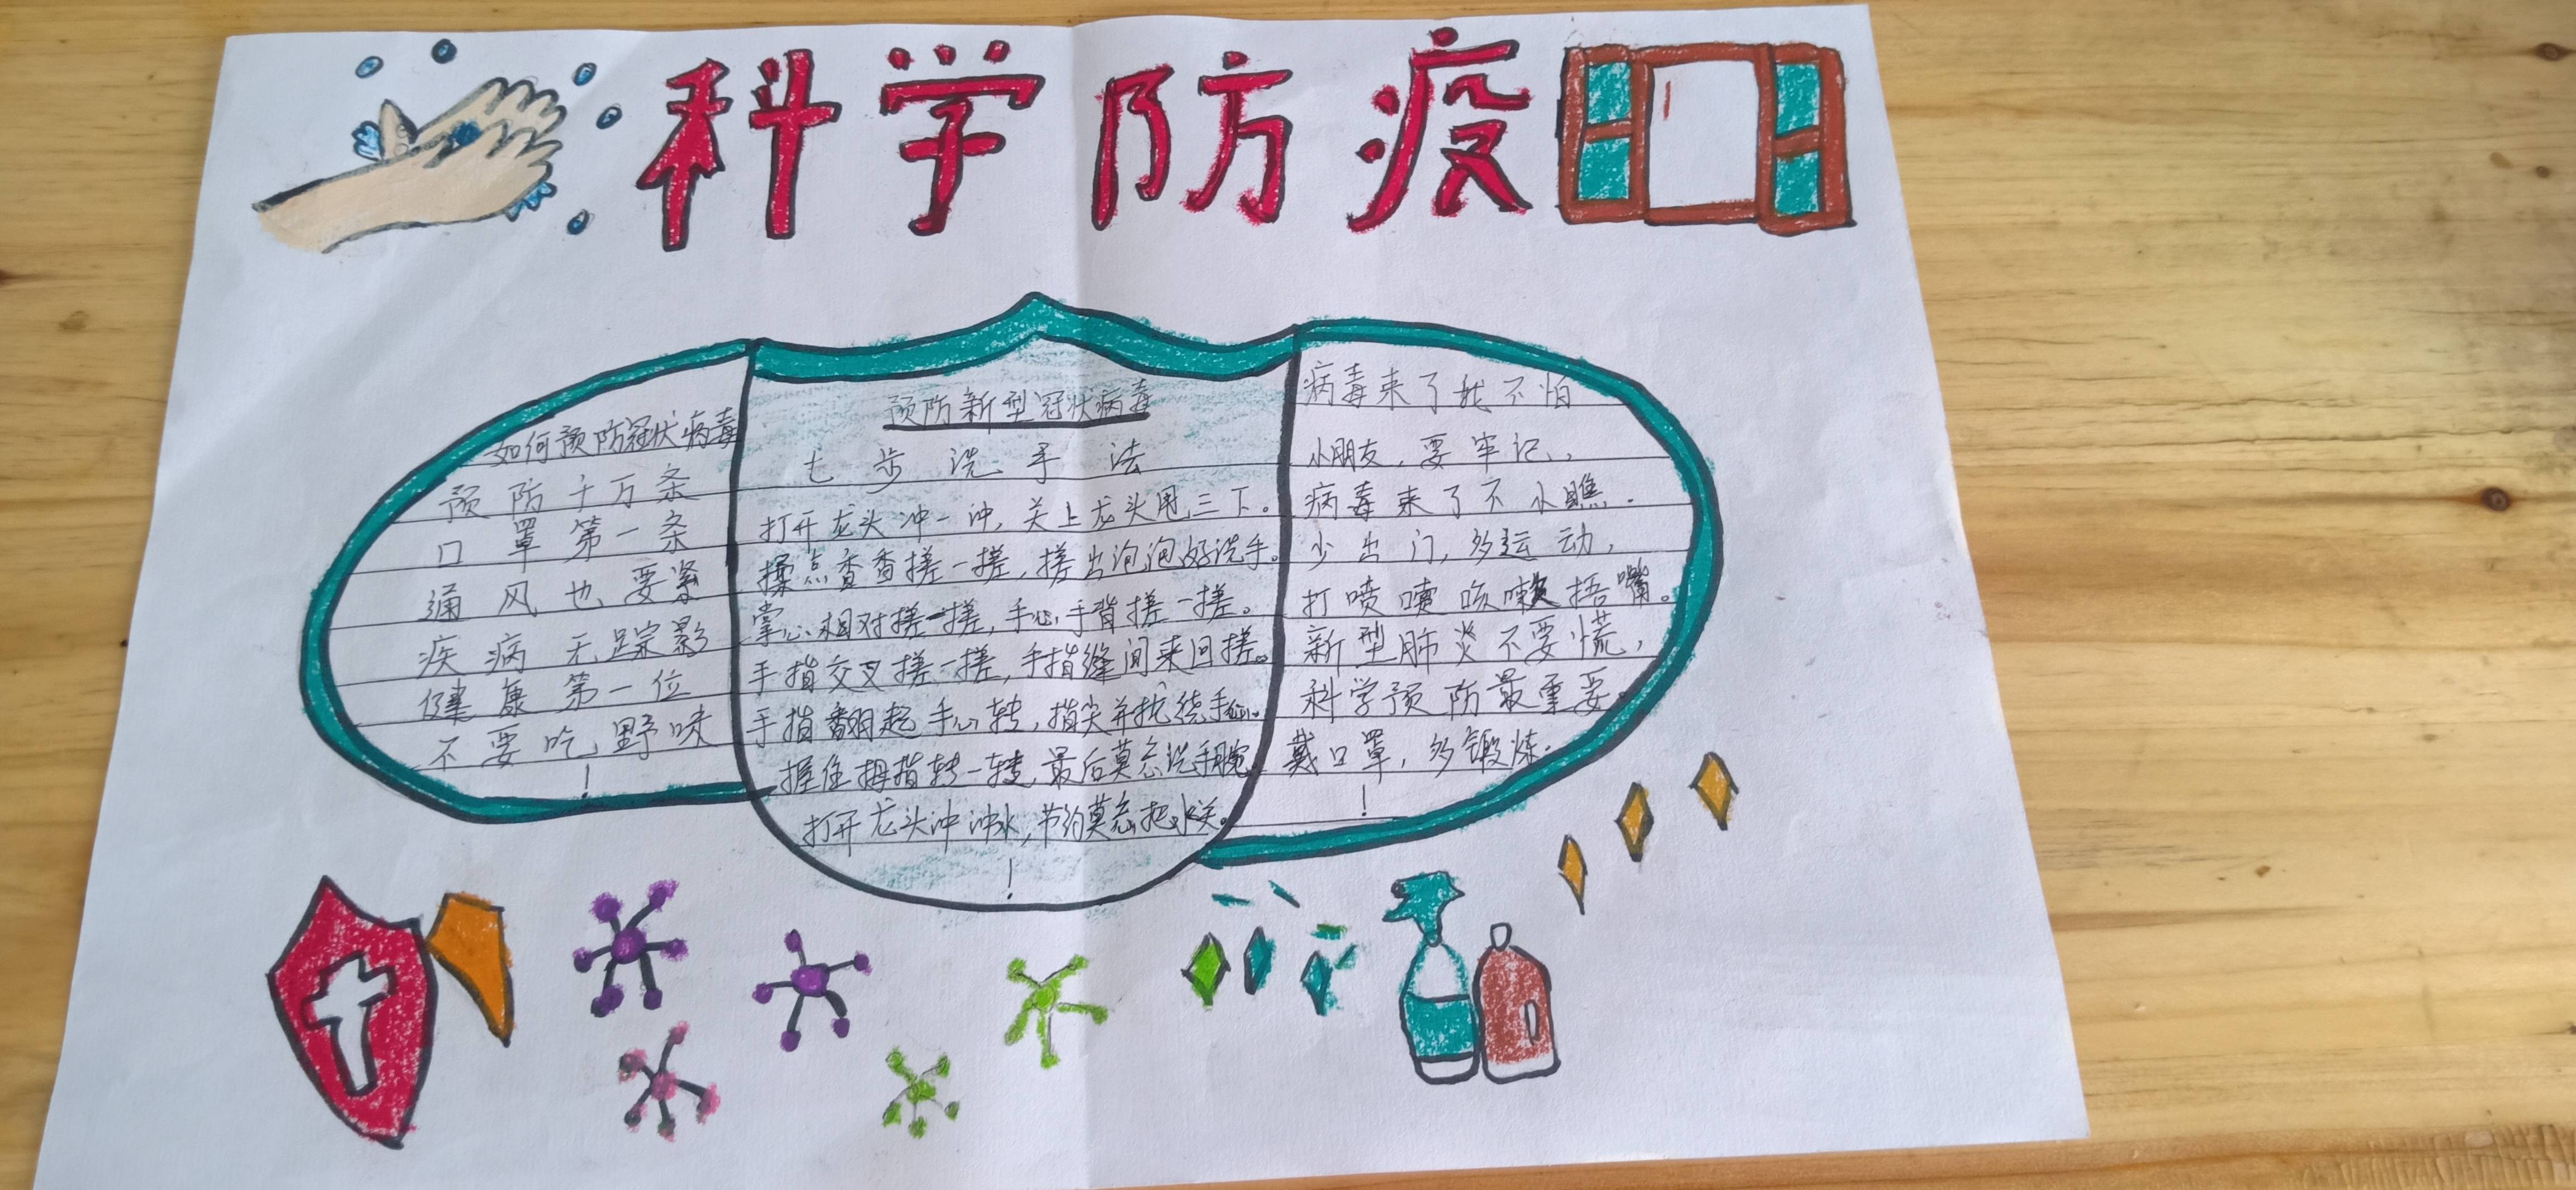 科学防疫
如何预防冠状病毒
预防千万条
口罩第一条
通风也要紧
疾病无踪影
健康第一位
不要吃野味
!
预防新型冠状病毒
七步洗手法
打开龙头冲一冲,关上龙头甩三下。
揉点香香搓一搓,搓出泡泡好洗手。
掌心相对搓一搓,手心手背搓一搓。
手指交叉搓一搓,手指缝间来回搓。
手指翻起手心转,指尖并拢绕手心。
握住拇指转一转,最后莫忘洗手腕。
打开龙头冲冲水,节约莫忘把水关。
!
病毒来了我不怕
小朋友,要牢记,
病毒来了不小瞧.
少出门,多运动,
打喷嚏咳嗽捂嘴。
新型肺炎不要慌,
科学预防最重要。
戴口罩,多锻炼.
!